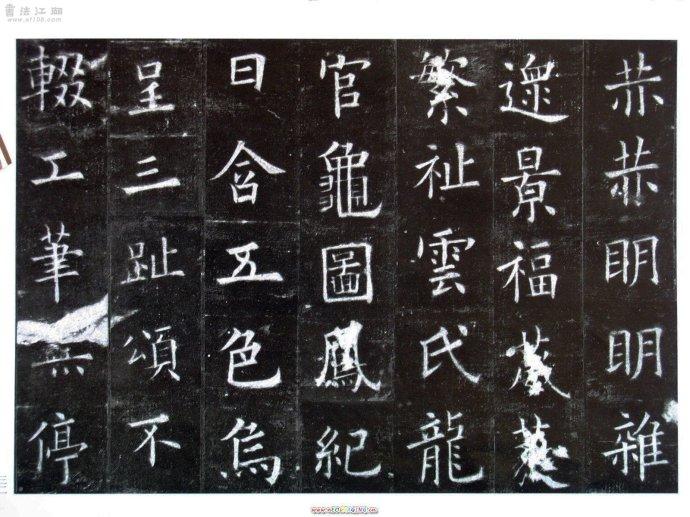 書法江湖
www.sf108.com
赫赫明明雜
遝景福葳蕤
繁祉雲氏龍
官龜圖鳳紀
日含五色烏
呈三趾頌不
輟工筆無停